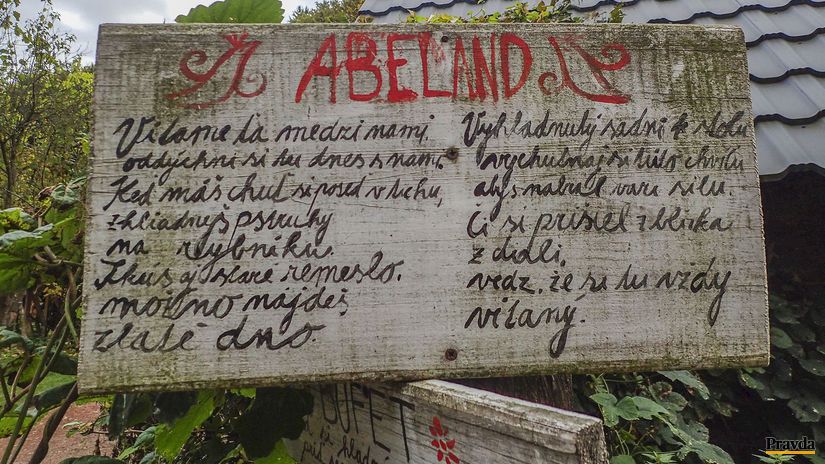 ABELAND
Vítame ťa medzi nami.
oddýchni si tu dnes s nami.
Keď máš chuť si posed v tichu,
zhliadneš pstruhy
na rybníku.
Skús aj staré remeslo.
možno nájdeš
zlaté dno.
Vyhladnutý sadni k stolu
vychutnaj si túto chvíľu
abys nabral varu silu.
Či si prišiel z blízka
z diali,
vedz, že si tu vždy
vítaný.
BUFET
Pravda